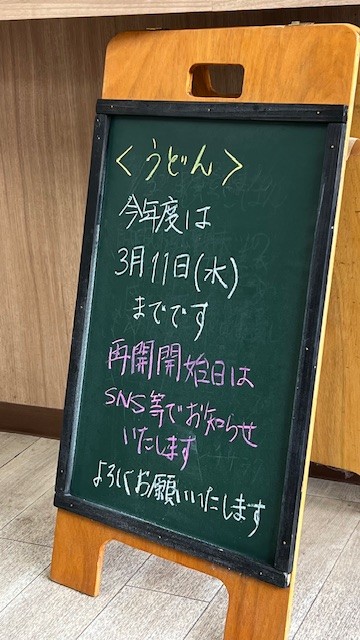 <うどん>
今年度は
3月11日(水)
までです
再開開始日は
SNS等でお知らせ
いたします
よろしくお願いいたします